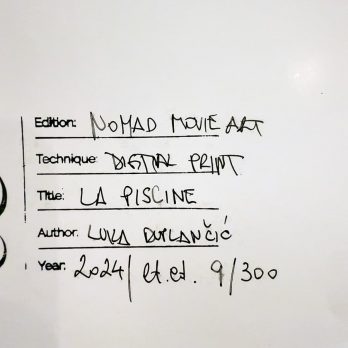 Edition: NOMAD MOVIE ART
Technique: DIGITAL PRINT
Title: LA PISCINE
Author: LUKA DUPLANČIĆ
Year: 2024 / lt.ed. 9/300